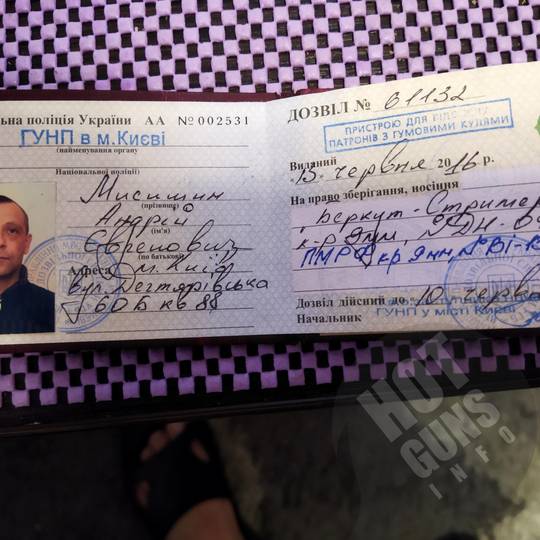 ьна поліція України АА №002531
ГУНП в м.Києві
(найменування органу
Національної поліції)
Мисишин
(прізвище)
Андрій
(ім'я)
(по батькові)
Адреса м. Київ
вул. Дегтярівська
60Б кв 88
ДОЗВІЛ № 61132
ПРИСТРОЮ ДЛЯ
ПАТРОНІВ З ГУМОВИМИ КУЛЯМИ
Виданий
13 червня 2016 р.
На право зберігання, носіння
"Беркут-
к-р 9мм,
ПМРФ кр 9мм №
Дозвіл дійсний до 10 черв
ГУНП У МІСТІ КИЄВІ
Начальник
HOT
GUNS
INFO